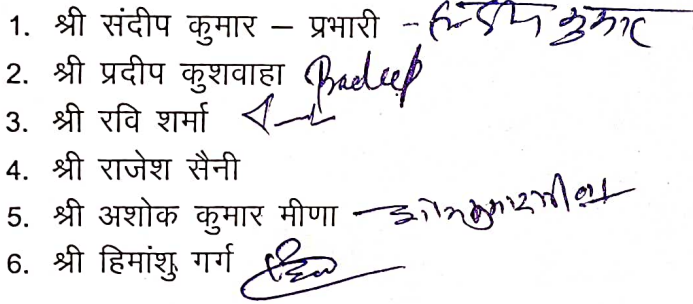 1. श्री संदीप कुमार – प्रभारी - संदीप कुमार
2. श्री प्रदीप कुशवाहा Pradeep
3. श्री रवि शर्मा
4. श्री राजेश सैनी
5. श्री अशोक कुमार मीणा -
6. श्री हिमांशु गर्ग